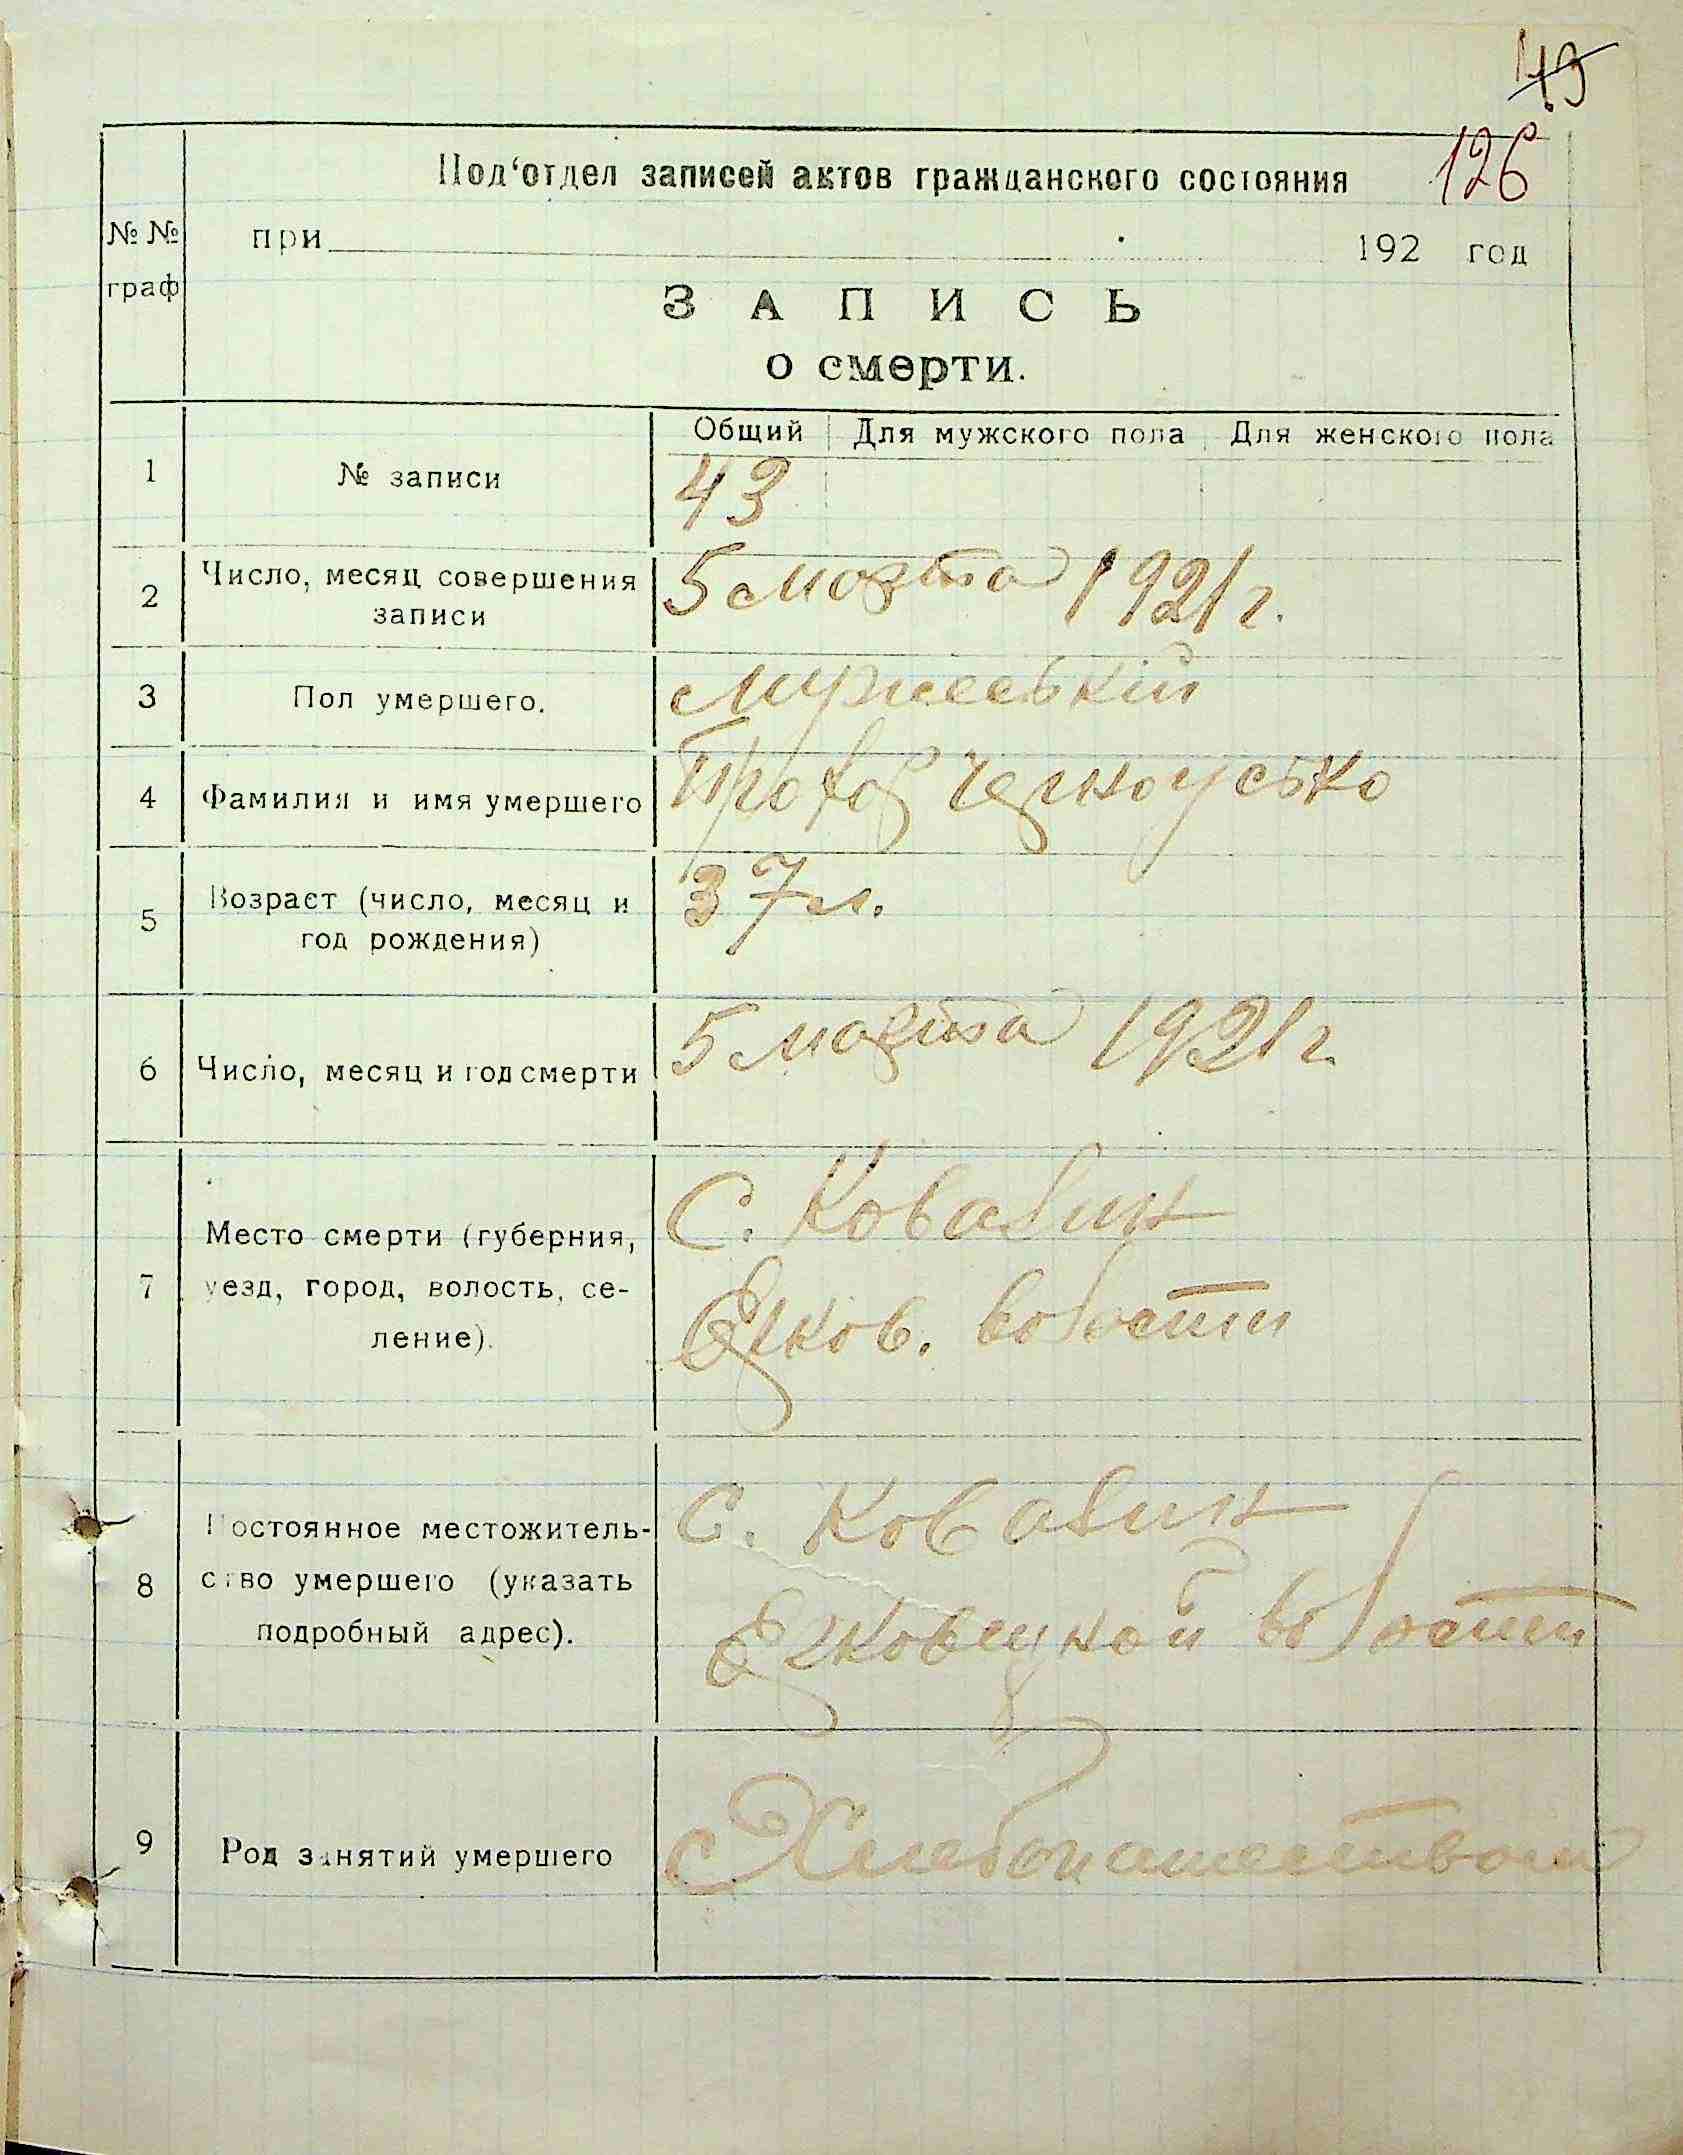 49
126
Под‘отдел записей актов гражданского состояния
№ №
граф
при 192 год
ЗАПИСЬ
о смерти.
Общий Для мужского пола Для женского пола
1 № записи 43
2 Число, месяц совершения
записи
5 марта 1921 г.
3 Пол умершего. мужеський
4 Фамилия и имя умершего Прохор Черноусько
5 Возраст (число, месяц и
год рождения)
37 л.
6 Число, месяц и год смерти 5 марта 1921 г.
7 Место смерти (губерния,
уезд, город, волость, се-
ление).
С. Ковалин
волости
8 Постоянное местожитель-
ство умершего (указать
подробный адрес).
С. Ковалин
волости
9 Род занятий умершего Хлебопашеством